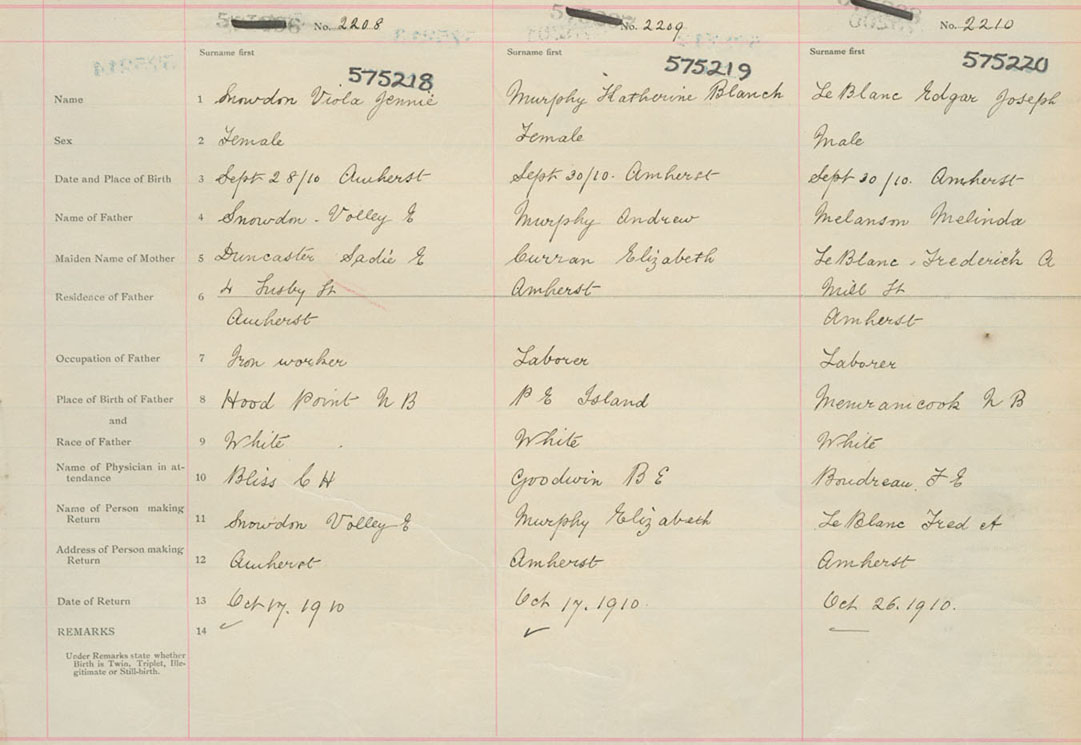 No. 2208 No. 2209 No. 2210
Surname first Surname first Surname first
575218 575219 575220
Name 1 Snowdon Viola Jennie Murphy Katherine Blanch LeBlanc Edgar Joseph
Sex 2 Female Female Male
Date and Place of Birth 3 Sept 28/10 Amherst Sept 30/10. Amherst Sept 30/10. Amherst
Name of Father 4 Snowdon - Volley E Murphy Andrew Melanson Melinda
Maiden Name of Mother 5 Duncaster Sadie E Curran Elizabeth LeBlanc - Frederick A
Residence of Father 6 4 Lusby St Amherst Mill St
Amherst Amherst
Occupation of Father 7 Iron worker Laborer Laborer
Place of Birth of Father 8 Hood Point N B P E Island Memramcook N B
and
Race of Father 9 White White White
Name of Physician in at-
tendance 10 Bliss C H Goodwin B E Boudreau F E
Name of Person making
Return 11 Snowdon Volley E Murphy Elizabeth LeBlanc Fred A
Address of Person making
Return 12 Amherst Amherst Amherst
Date of Return 13 Oct 17. 1910 Oct 17. 1910. Oct 26. 1910.
REMARKS 14
Under Remarks state whether
Birth is Twin, Triplet, Ille-
gitimate or Still-birth.